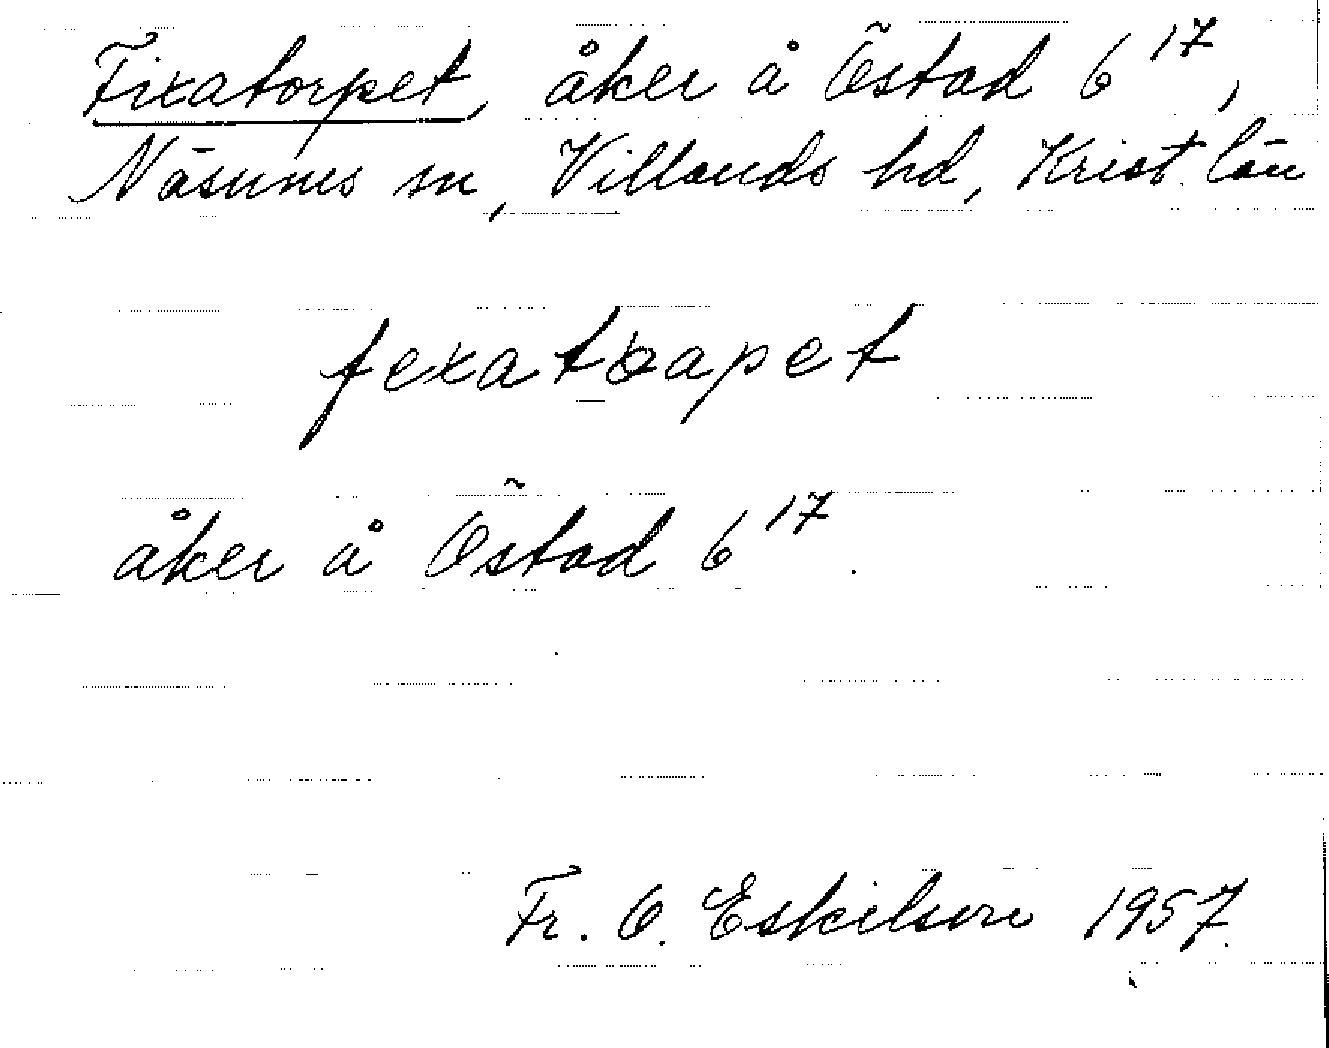 Fixatorpet, åker å Östad 6¹⁷,
Näsums sn, Villands hd, Krist. län
fexatoapet
åker å Östad 6¹⁷.
Fr. O. Eskilsson 1957.